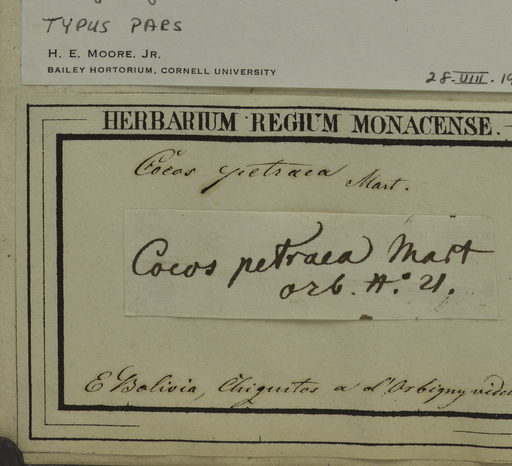 TYPUS PARS
H. E. MOORE. JR.
BAILEY HORTORIUM, CORNELL UNIVERSITY
28.VIII.19
HERBARIUM REGIUM MONACENSE.
Cocos petraea Mart.
Cocos petraea Mart
orb. N.° 21.
E Bolivia, Chiquitos a d'Orbigny